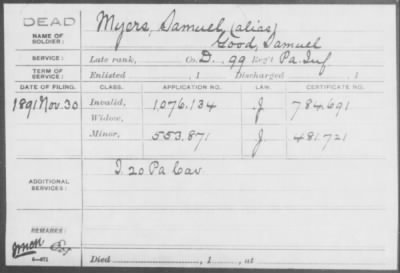 DEAD
Myers, Samuel (alias)
NAME OF SOLDIER:
Good, Samuel
SERVICE:
Late rank, Co. D. 99 Reg't Pa Inf
TERM OF SERVICE:
Enlisted , 1 Discharged , 1
DATE OF FILING. CLASS. APPLICATION NO. LAW. CERTIFICATE NO.
1891 Nov. 30 Invalid, 1,076,134 J. 784,691
Widow,
Minor, 553,871 J. 481,721
I. 20 Pa Cav
ADDITIONAL SERVICES:
REMARKS:
Died , 1 , at